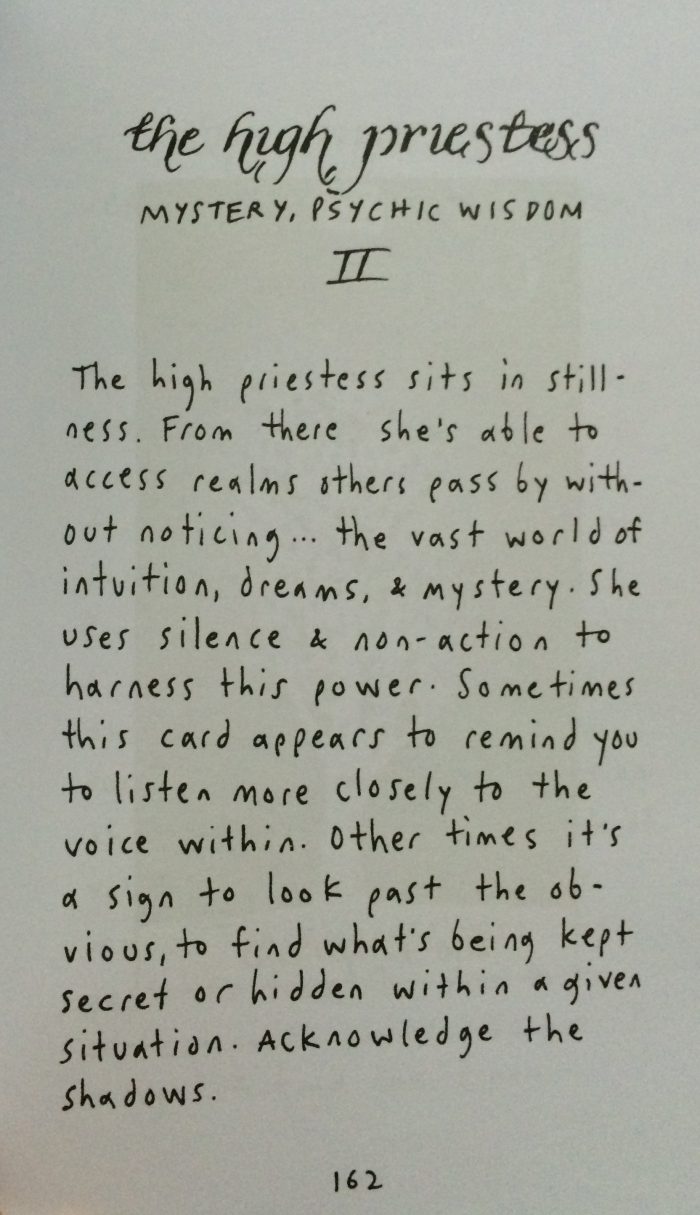 the high priestess
MYSTERY, PSYCHIC WISDOM
II
The high priestess sits in still-
ness. From there she's able to
access realms others pass by with-
out noticing... the vast world of
intuition, dreams, & mystery. She
uses silence & non-action to
harness this power. Sometimes
this card appears to remind you
to listen more closely to the
voice within. Other times it's
a sign to look past the ob-
vious, to find what's being kept
secret or hidden within a given
situation. Acknowledge the
shadows.
162